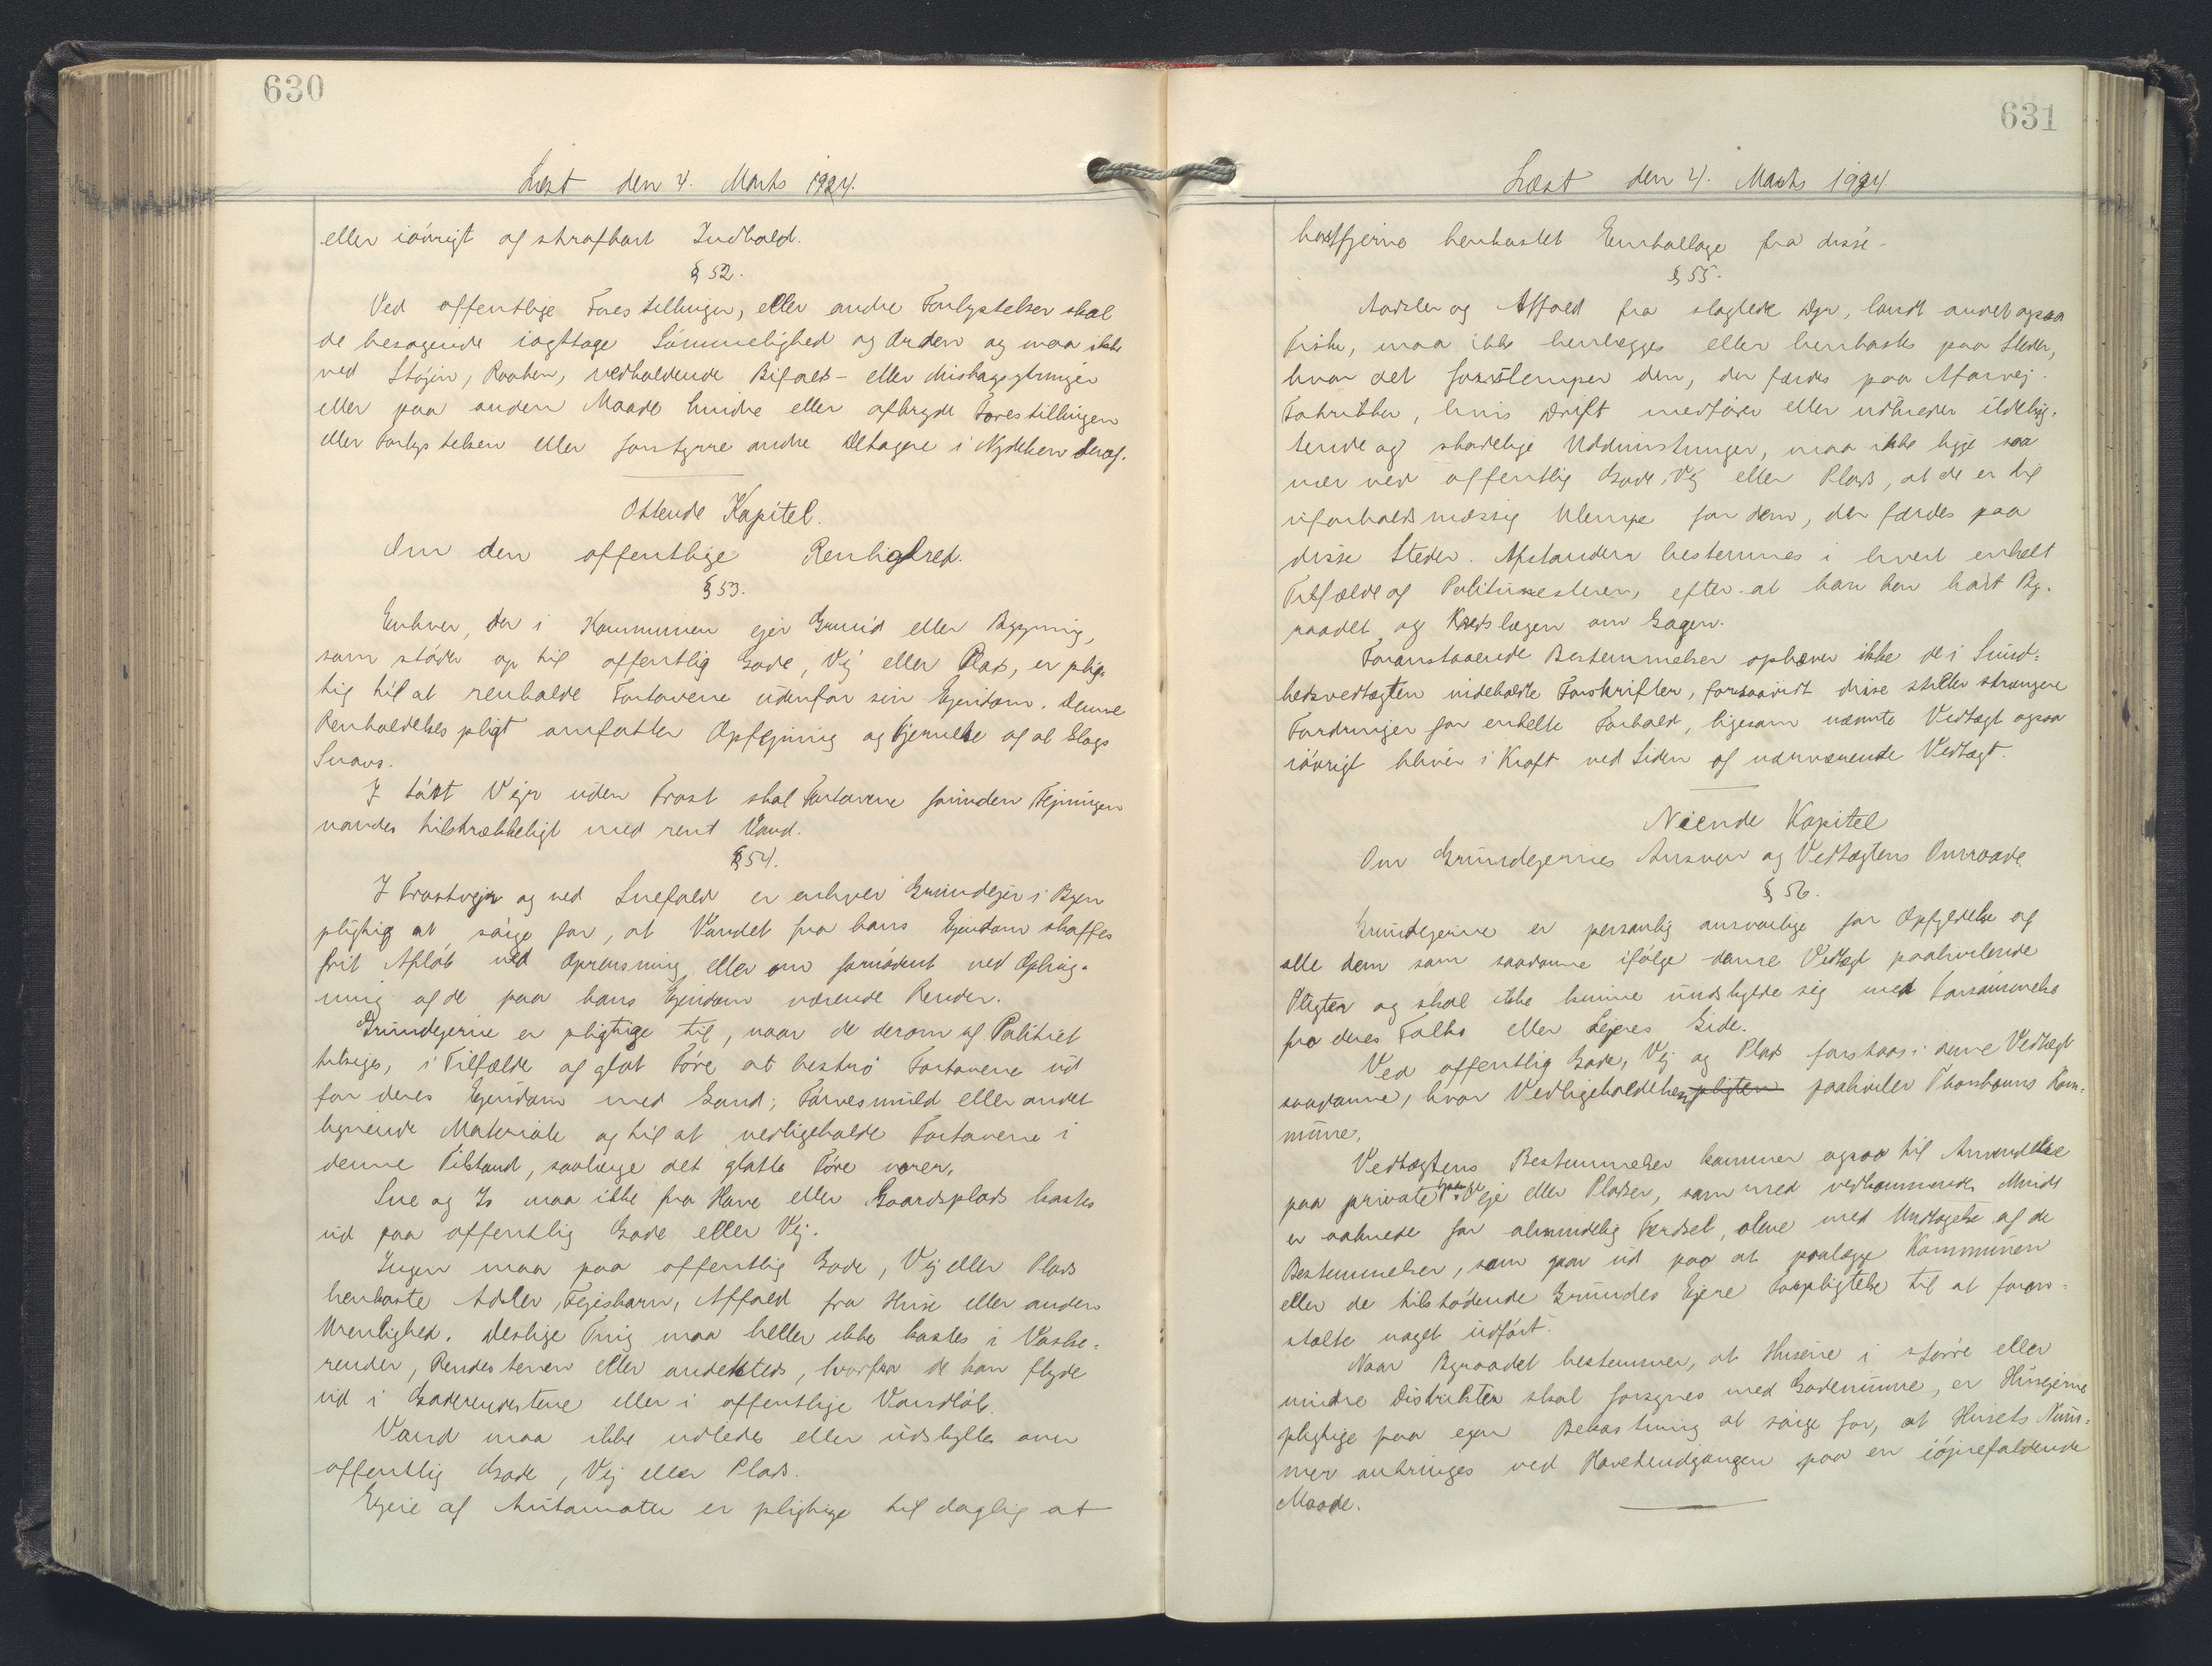 630
Læst den 4. Marts 1924.
eller iøvrigt af strafbart Indhold.
§ 52.
Ved offentlige Forestillinger, eller andre Forlystelser skal
de besøgende iagttage Sømmelighed og Orden og maa ikke
ved Støjen, Raaben, vedholdende Bifalds- eller Mishagsytringer
eller paa anden Maade hindre eller afbryde Forestillingen
eller Forlystelsen eller forstyrre andre Deltagere i Nydelsen deraf.
Ottende Kapitel.
Om den offentlige Renlighed.
§ 53.
Enhver, der i Kommunen ejer Grund eller Bygning,
som støder op til offentlig Gade, Vej eller Plads, er plig-
tig til at renholde Fortovene udenfor sin Ejendom. Denne
Renholdelsespligt omfatter Opfejning og Fjernelse af al Slags
Snavs.
I tørt Vejr uden Frost skal Fortovene forinden Fejningen
vandes tilstrækkeligt med rent Vand.
§ 54.
I Frostvejr og ved Snefald er enhver Grundejer i Byen
pligtig at sørge for, at Vandet fra hans Ejendom skaffes
frit Afløb ved Oprensning, eller om fornødent ved Ophug-
ning af de paa hans Ejendom værende Render.
Grundejerne er pligtige til, naar de derom af Politiet
tilsiges, i Tilfælde af glat Føre at bestrø Fortovene ud
for deres Ejendom med Sand, Tørvesmuld eller andet
lignende Materiale og til at vedligeholde Fortovene i
denne Tilstand, saalænge det glatte Føre varer.
Sne og Is maa ikke fra Have eller Gaardsplads kastes
ud paa offentlig Gade eller Vej.
Ingen maa paa offentlig Gade, Vej eller Plads
henkaste Adsler, Fejeskarn, Affald fra Huse eller anden
Urenlighed. Deslige Ting maa heller ikke kastes i Vaske-
render, Rendestenen eller andetsteds, hvorfra de kan flyde
ud i Gaderendestene eller i offentlige Vandløb.
Vand maa ikke udledes eller udskylles over
offentlig Gade, Vej eller Plads.
Ejere af Automater er pligtige til daglig at
631
Læst den 4. Marts 1924.
bortfjerne henkastet Emballage fra disse.
§ 55.
Aadsler og Affald fra slagtede Dyr, landt andet ogsaa
Fiske, maa ikke henlægges eller henkastes paa Steder,
hvor det forulemper den, der færdes paa Alfarvej.
Fabrikker, hvis Drift medfører eller udbreder ildelug-
tende og skadelige Uddunstninger, maa ikke ligge saa
nær ved offentlig Gade, Vej eller Plads, at de er til
uforholdsmæssig Ulempe for dem, der færdes paa
disse Steder. Afstanden bestemmes i hvert enkelt
Tilfælde af Politimesteren, efter at han har hørt By-
raadet og Kredslægen om Sagen.
Foranstaaende Bestemmelser ophæver ikke de i Sund-
hedsvedtægten indeholdte Forskrifter, forsaavidt disse stiller strængere
Fordringer for enkelte Forhold, ligesom nævnte Vedtægt ogsaa
iøvrigt bliver i Kraft ved Siden af nærværende Vedtægt.
Niende Kapitel
Om Grundejernes Ansvar og Vedtægtens Omraade.
§ 56.
Grundejerne er personlig ansvarlige for Opfyldelse af
alle dem som saadanne ifølge denne Vedtægt paahvilende
Pligter og skal ikke kunne undskylde sig med Forsømmelse
fra deres Folks eller Lejeres Side.
Ved offentlig Gade, Vej og Plads forstaas i denne Vedtægt
saadanne, hvor Vedligeholdelsespligten paahviler Thorshavns Kom-
mune.
Vedtægtens Bestemmelser kommer ogsaa til Anvendelse
paa private Veje eller Pladser, som med vedkommendes Minde
er aabnede for almindelig Færdsel, alene med Undtagelse af de
Bestemmelser, som gaar ud paa at paalægge Kommunen
eller de tilstødende Grundes Ejere Forpligtelse til at foran-
stalte noget udført.
Naar Byraadet bestemmer, at Husene i større eller
mindre Distrikter skal forsynes med Gadenumre, er Husejerne
pligtige paa egen Bekostning at sørge for, at Husets Num-
mer anbringes ved Hovedindgangen paa en iøjnefaldende
Maade.